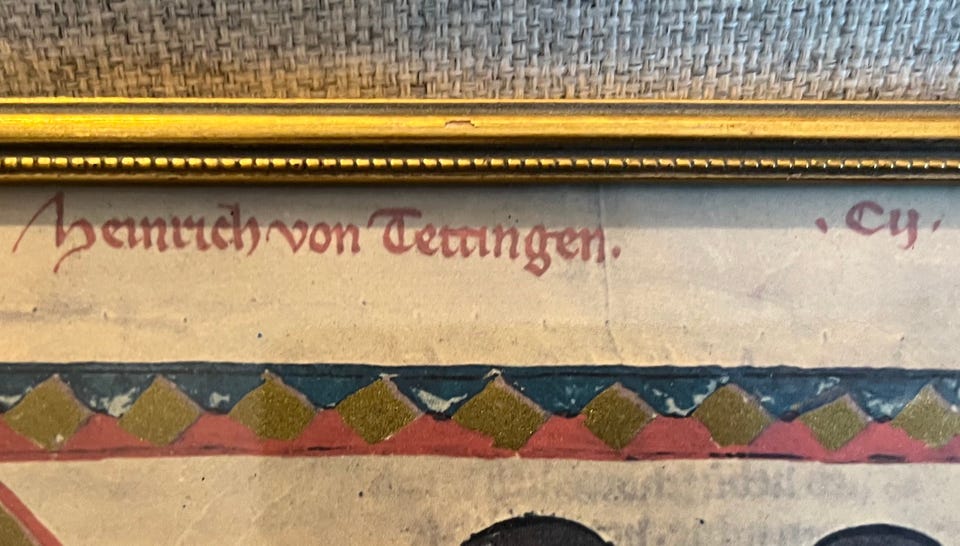 Heinrich von Tettingen. · Cij ·